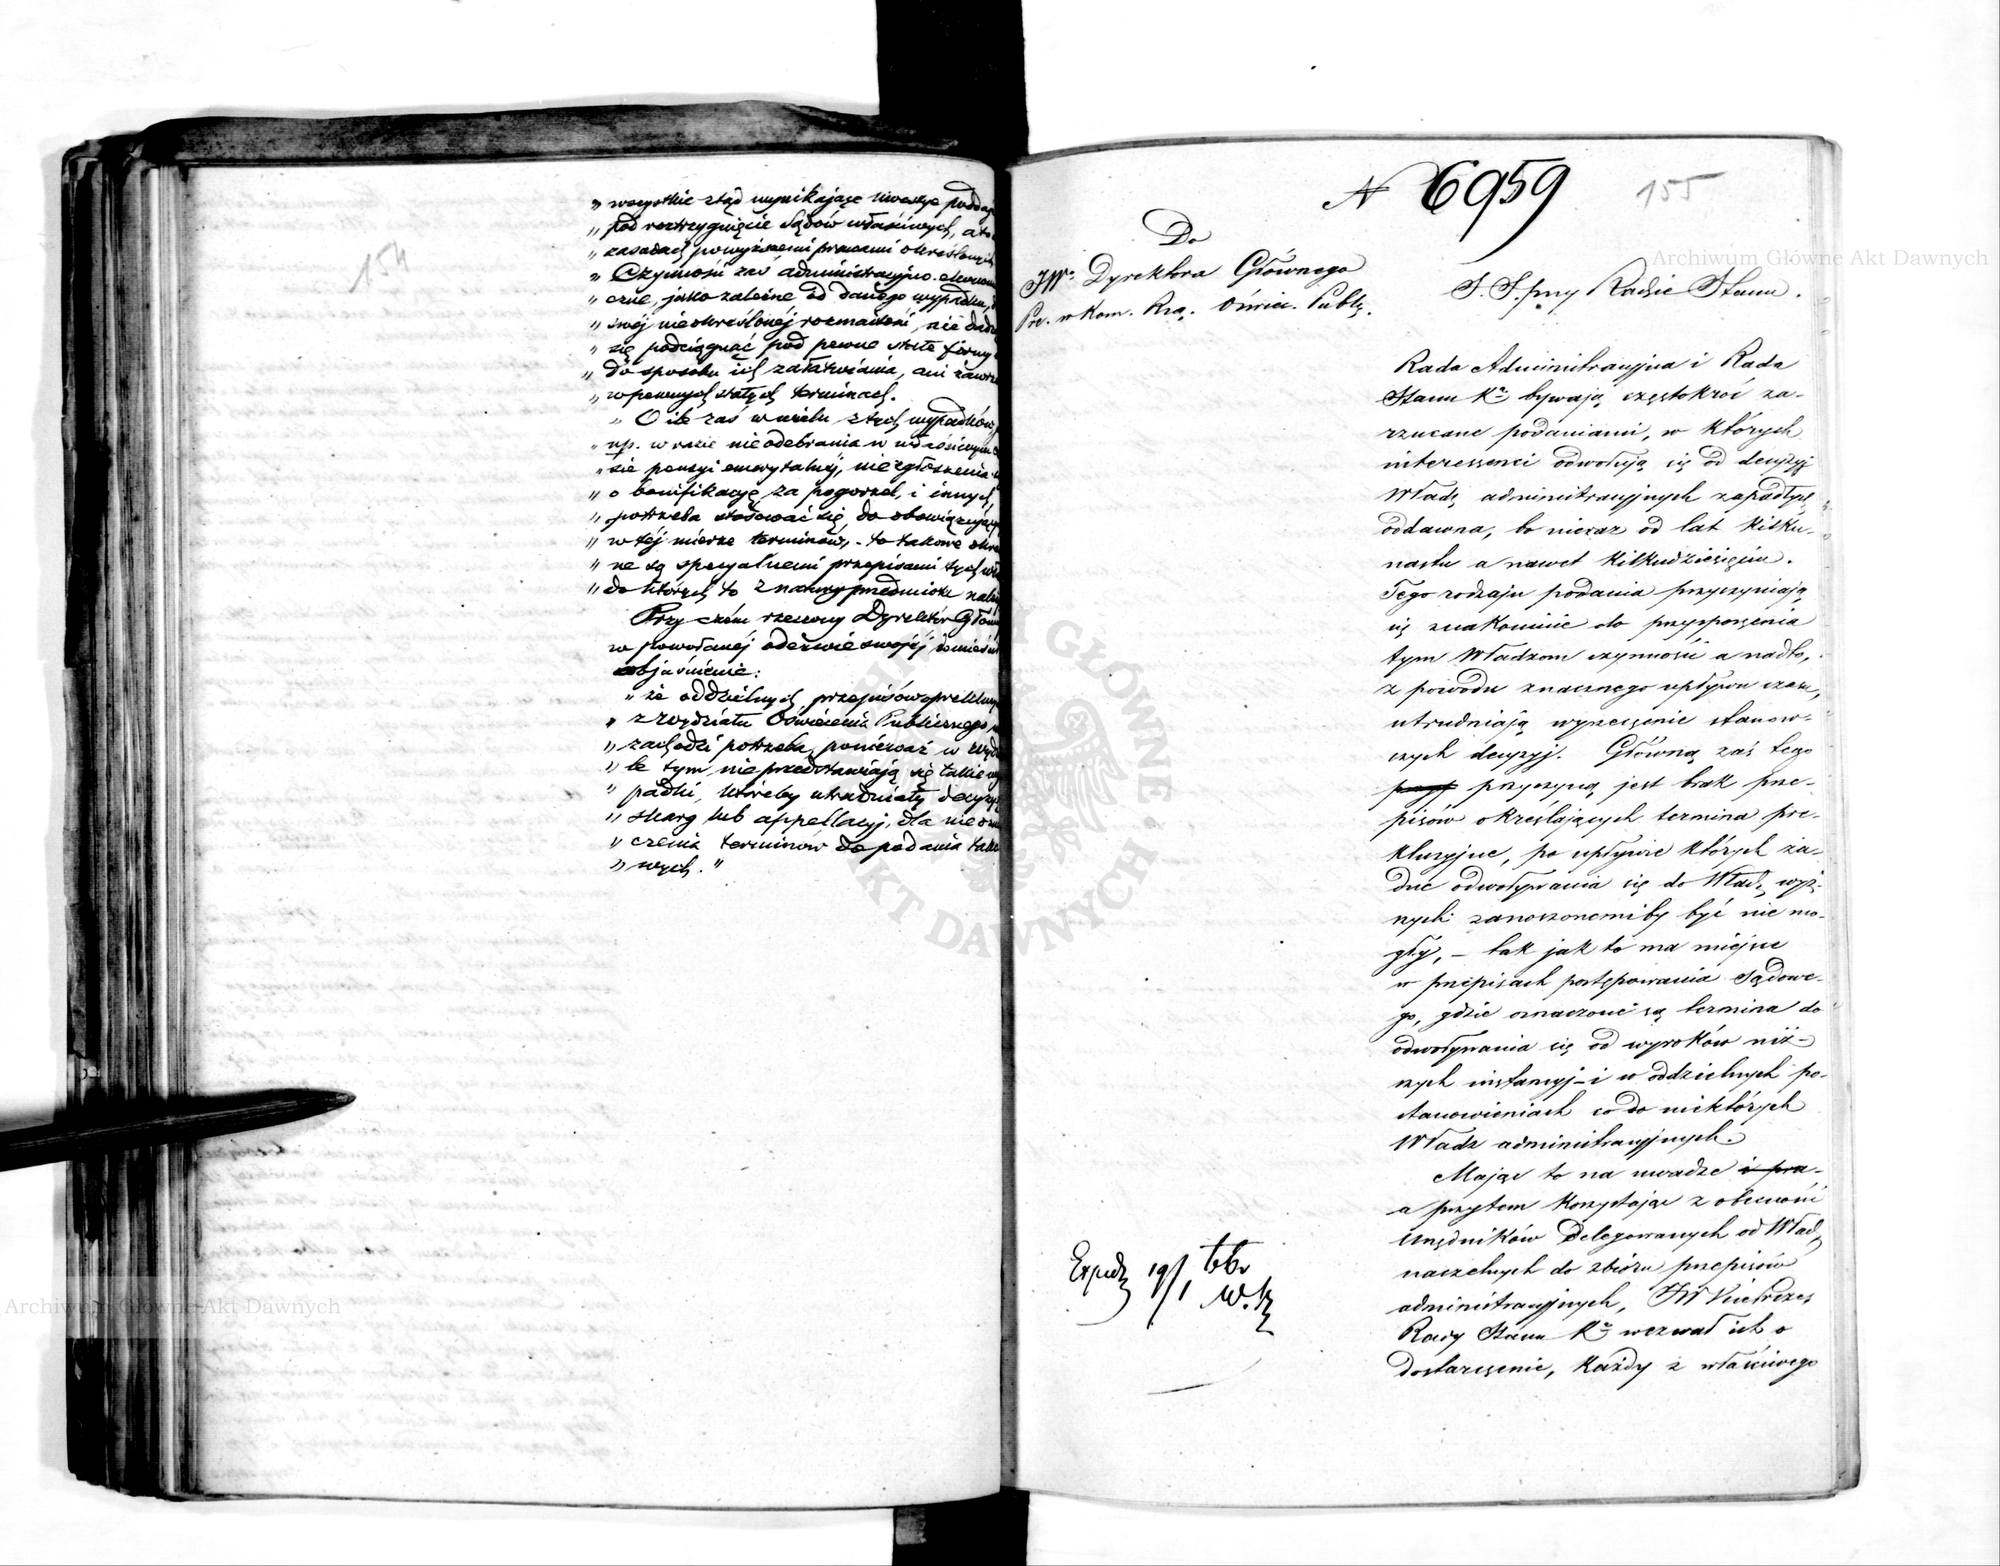 154
„ wszystkie ztąd wynikające kwestye poddaje
„ pod rozstrzygnięcie Sądów właściwych, a to
„ zasadach powyższemi prawami określonych
„ Czynności zaś administracyjno-ekono
„ czne, jako zależne od danego wypadku,
„ swéj nieokreślonéj rozmaitości, nie dad
„ się podciągnąć pod pewne stałe formy
„ do sposobu ich załatwiania, ani zawrz
„ w pewnych stałych terminach.
„ O ile zaś w wielu z tych wypadków,
„ np. w razie nieodebrania w właściwym
„ sie pensyi emerytalnéj, niezgłoszenia
„ o bonifikacyę za pogorzel, i innych,
„ potrzeba stosować się do obowiązujący
„ w téj mierze terminów, - to takowe okre
„ ne są specyalnemi przepisami tych wł
„ do których to z natury przedmiotu należ
Przy czém rzeczony Dyrektor Głów
w powołanéj odezwie swojéj
objaśnienie:
„ że oddzielnych przepisów prekluzy
„ z wydziału Oświecenia Publicznego
„ zachodzi potrzeba, ponieważ w wydzi
„ le tym, nie przedstawiają się takie wy
„ padki, któreby utrudniały decyzyę
„ skarg lub appellacyj, dla nieozna
„ czenia terminów do podania tako
„ wych."
N 6959
155
Do
JW. Dyrektora Głównego
Pr. w Kom. Rzą. Oświec. Publ.
S. S. przy Radzie Stanu.
Rada Administracyjna i Rada
Stanu Kr. bywają częstokroć za-
rzucane podaniami, w których
interessenci odwołują się od decyzyj
Władz administracyjnych zapadłych
oddawna, bo nieraz od lat kilku-
nastu a nawet kilkudziesięciu.
Tego rodzaju podania przyczyniają
się znakomicie do przysporzenia
tym Władzom czynności a nadto,
z powodu znacznego upływu czasu,
utrudniają wyrzeczenie stanow-
czych decyzyj. Główną zaś tego
przyczyną jest brak prze-
pisów określających termina pre-
kluzyjne, po upływie których ża-
dne odwoływania się do Władz wyż-
szych zanoszonemi by być nie mo-
gły, - tak jak to ma miejsce
w przepisach postępowania Sądowe-
go, gdzie oznaczone są termina do
odwoływania się od wyroków niż-
szych instancyj - i w oddzielnych po-
stanowieniach co do niektórych
Władz administracyjnych.
Mając to na uwadze i pra-
a przytem korzystając z obecności
Urzędników Delegowanych od Władz
naczelnych do zbioru przepisów
administracyjnych, JW Vice Prezes
Rady Stanu Kr. wezwał ich o
dostarczenie, każdy z właściwego
Exped. 19/1